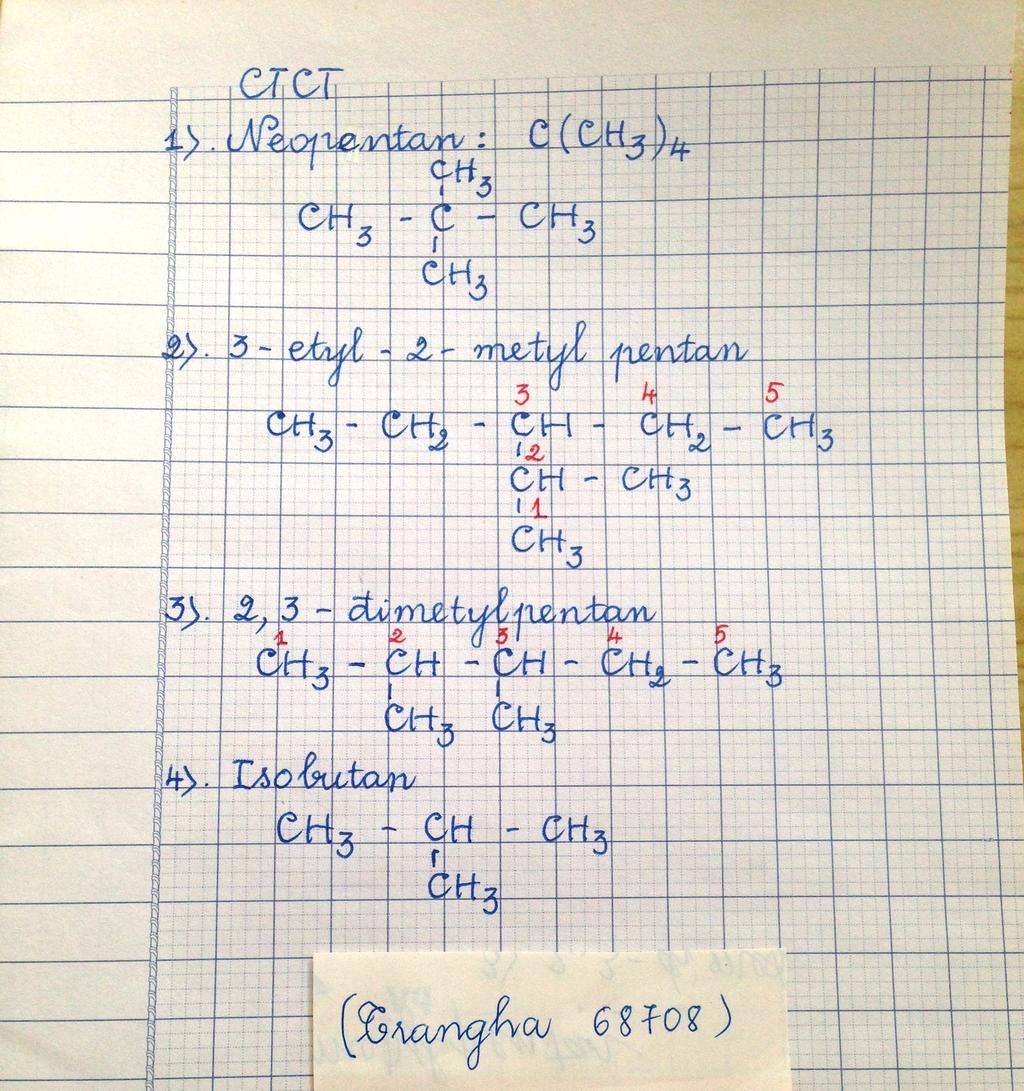 CTCT
1). Neopentan: C(CH3)4
CH3
CH3 - C - CH3
CH3
2). 3 - etyl - 2 - metyl pentan
3 4 5
CH3 - CH2 - CH - CH2 - CH3
2
CH - CH3
1
CH3
3). 2, 3 - đimetylpentan
1 2 3 4 5
CH3 - CH - CH - CH2 - CH3
CH3 CH3
4). Isobutan
CH3 - CH - CH3
CH3
(Trangha 68708)